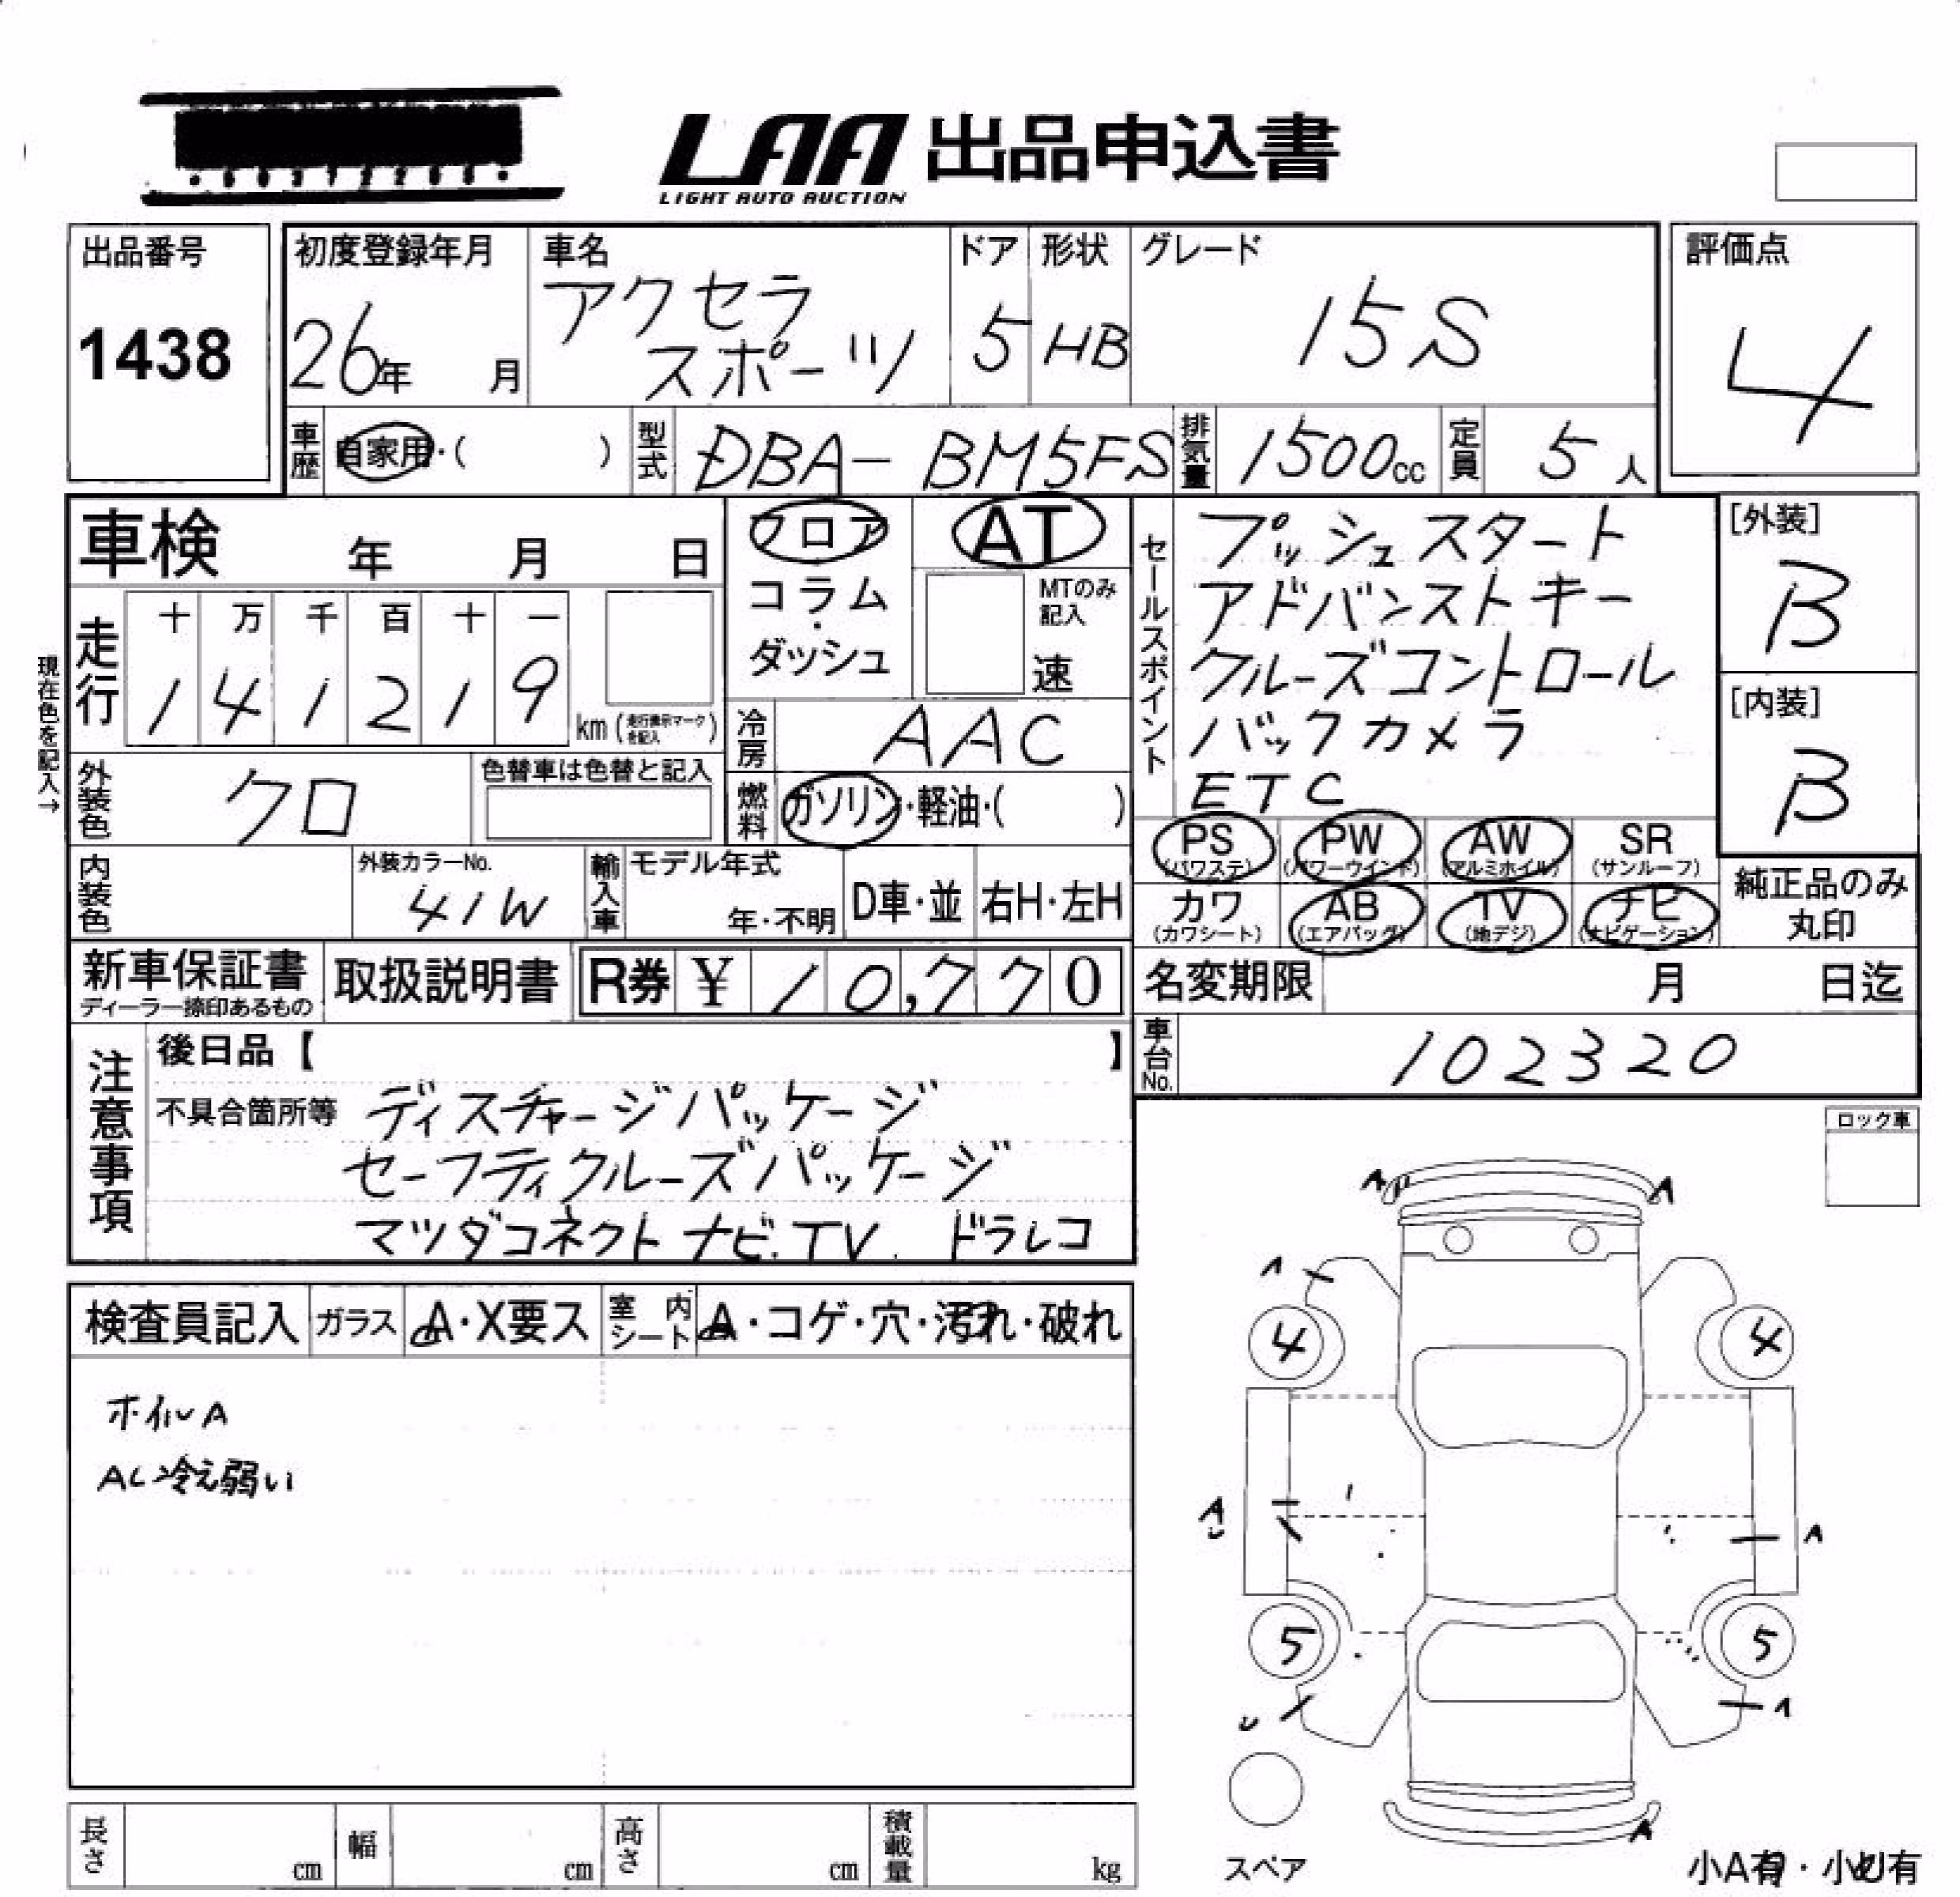 LAA 出品申込書
LIGHT AUTO AUCTION
出品番号
1438
初度登録年月
26年 月
車名
アクセラ
スポーツ
ドア
5
形状
HB
グレード
15S
評価点
4
車歴 自家用・( )
型式 DBA-BM5FS
排気量 1500cc
定員 5人
車検 年 月 日
フロア
コラム
・
ダッシュ
AT
MTのみ
記入
速
セールスポイント
プッシュスタート
アドバンストキー
クルーズコントロール
バックカメラ
ETC
[外装]
B
[内装]
B
現在色を記入→
走行
十 万 千 百 十 一
1 4 1 2 1 9
km (走行表示マークを記入)
冷房 AAC
外装色 クロ
色替車は色替と記入
燃料 ガソリン・軽油・( )
PS (パワステ)
PW (パワーウインド)
AW (アルミホイル)
SR (サンルーフ)
カワ (カワシート)
AB (エアバッグ)
TV (地デジ)
ナビ (ナビゲーション)
純正品のみ
丸印
内装色
外装カラーNo.
41W
輸入車
モデル年式
年・不明
D車・並
右H・左H
新車保証書
ディーラー捺印あるもの
取扱説明書
R券 ¥ 10,770
名変期限 月 日迄
車台No. 102320
注意事項
後日品【 】
不具合箇所等 ディスチャージパッケージ
セーフティクルーズパッケージ
マツダコネクト ナビ.TV. ドラレコ
ロック車
検査員記入
ガラス A・X要ス
室内シート A・コゲ・穴・汚れ・破れ
ホイルA
AC冷え弱い
A A
A
4 4
A
U
A
5 5
U
A
A
スペア
小A有・小U有
長さ cm
幅 cm
高さ cm
積載量 kg